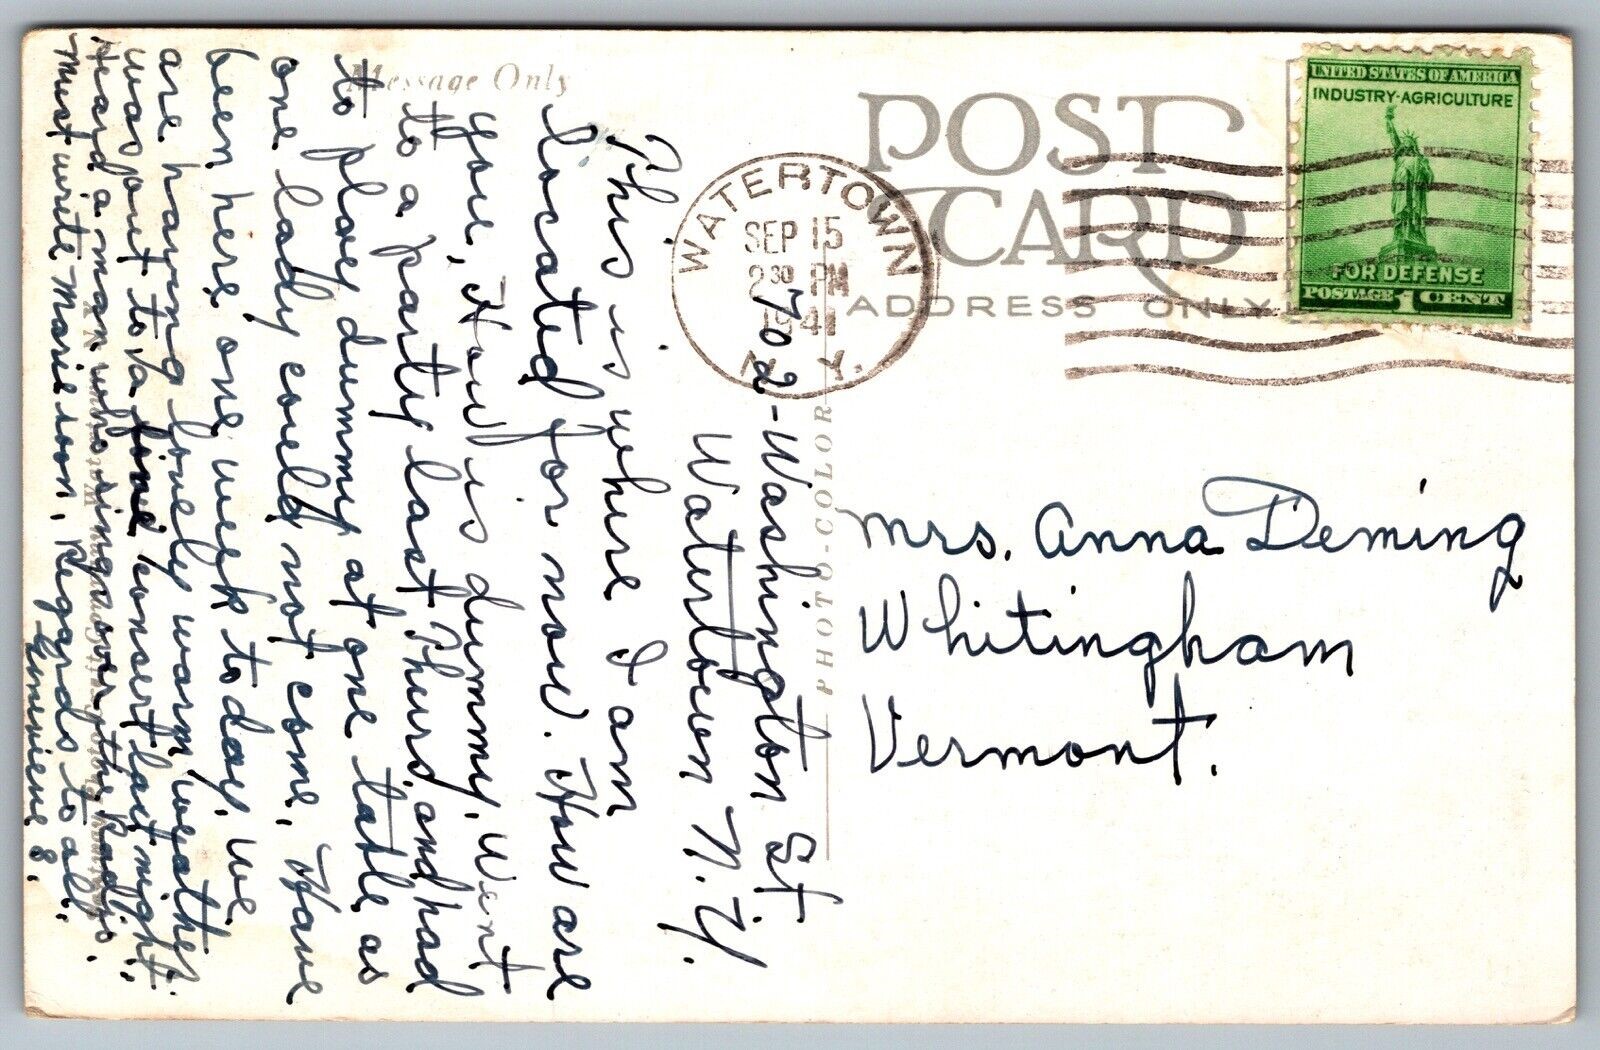 Message Only
POST
CARD
ADDRESS ONLY
WATERTOWN
SEP 15
2 30 PM
1941
N. Y.
UNITED STATES OF AMERICA
INDUSTRY-AGRICULTURE
FOR DEFENSE
POSTAGE 1 CENT
PHOTO-COLOR
702-Washington St
Watertown N.Y.
This is where I am
located for now. How are
you, How is dummy, went
to a party last Thurs, and had
to play dummy at one table as
one lady could not come, Have
been here one week today, we
are having lovely warm weather.
was out to a fine concert last night.
Heard a man who sings over the Radio.
must write Marie soon, Regards to all.
Genevieve S.
Mrs. Anna Deming
Whitingham
Vermont.